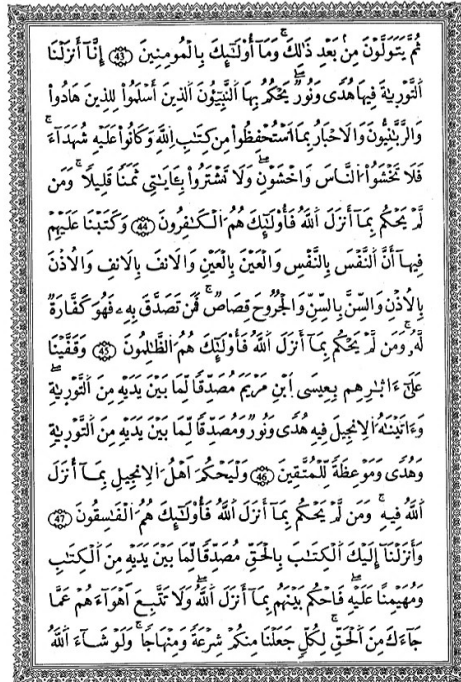 ثُمَّ يَتَوَلَّوْنَ مِنۢ بَعْدِ ذَٰلِكَ ۚ وَمَآ أُوْلَٰٓئِكَ بِالْمُومِنِينَ 43 إِنَّآ أَنزَلْنَا
اَ۬لتَّوْر۪يٰةَ فِيهَا هُدىٗ وَنُورٞ ۖ يَحْكُمُ بِهَا اَ۬لنَّبِيُّـُٔونَ اَ۬لذِينَ أَسْلَمُواْ لِلذِينَ هَادُواْ
وَالرَّبَّٰنِيُّونَ وَالَاحْبَارُ بِمَا اَ۟سْتُحْفِظُواْ مِن كِتَٰبِ اِ۬للَّهِ وَكَانُواْ عَلَيْهِ شُهَدَآءَ ۚ
فَلَا تَخْشَوُاْ اُ۬لنَّاسَ وَاخْشَوْنِ ۖ وَلَا تَشْتَرُواْ بِـَٔايَٰتِى ثَمَناٗ قَلِيلاٗ ۚ وَمَن
لَّمْ يَحْكُم بِمَآ أَنزَلَ اَ۬للَّهُ فَأُوْلَٰٓئِكَ هُمُ اُ۬لْكَٰفِرُونَ 44 وَكَتَبْنَا عَلَيْهِمْ
فِيهَآ أَنَّ اَ۬لنَّفْسَ بِالنَّفْسِ وَالْعَيْنَ بِالْعَيْنِ وَالَانفَ بِالَانفِ وَالُاذْنَ
بِالُاذْنِ وَالسِّنَّ بِالسِّنِّ وَالْجُرُوحَ قِصَاصٞ ۚ فَمَن تَصَدَّقَ بِهِۦ فَهُوَ كَفَّارَةٞ
لَّهُۥ ۚ وَمَن لَّمْ يَحْكُم بِمَآ أَنزَلَ اَ۬للَّهُ فَأُوْلَٰٓئِكَ هُمُ اُ۬لظَّٰلِمُونَ 45 وَقَفَّيْنَا
عَلَىٰٓ ءَاثٰ۪رِهِم بِعِيسَى اَ۪بْنِ مَرْيَمَ مُصَدِّقاٗ لِّمَا بَيْنَ يَدَيْهِ مِنَ اَ۬لتَّوْر۪يٰةِ ۖ
وَءَاتَيْنَٰهُ اُ۬لِانجِيلَ فِيهِ هُدىٗ وَنُورٞ وَمُصَدِّقاٗ لِّمَا بَيْنَ يَدَيْهِ مِنَ اَ۬لتَّوْر۪يٰةِ
وَهُدىٗ وَمَوْعِظَةٗ لِّلْمُتَّقِينَ 46 وَلْيَحْكُمَ اَهْلُ اُ۬لِانجِيلِ بِمَآ أَنزَلَ
اَ۬للَّهُ فِيهِ ۚ وَمَن لَّمْ يَحْكُم بِمَآ أَنزَلَ اَ۬للَّهُ فَأُوْلَٰٓئِكَ هُمُ اُ۬لْفَٰسِقُونَ 47
وَأَنزَلْنَآ إِلَيْكَ اَ۬لْكِتَٰبَ بِالْحَقِّ مُصَدِّقاٗ لِّمَا بَيْنَ يَدَيْهِ مِنَ اَ۬لْكِتَٰبِ
وَمُهَيْمِناً عَلَيْهِ ۖ فَاحْكُم بَيْنَهُم بِمَآ أَنزَلَ اَ۬للَّهُ ۖ وَلَا تَتَّبِعَ اَهْوَآءَهُمْ عَمَّا
جَآءَكَ مِنَ اَ۬لْحَقِّ ۚ لِكُلّٖ جَعَلْنَا مِنكُمْ شِرْعَةٗ وَمِنْهَاجاٗ ۚ وَلَوْ شَآءَ اَ۬للَّهُ